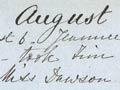 August
st 6 - Jeannie
- took him
Miss Dawson